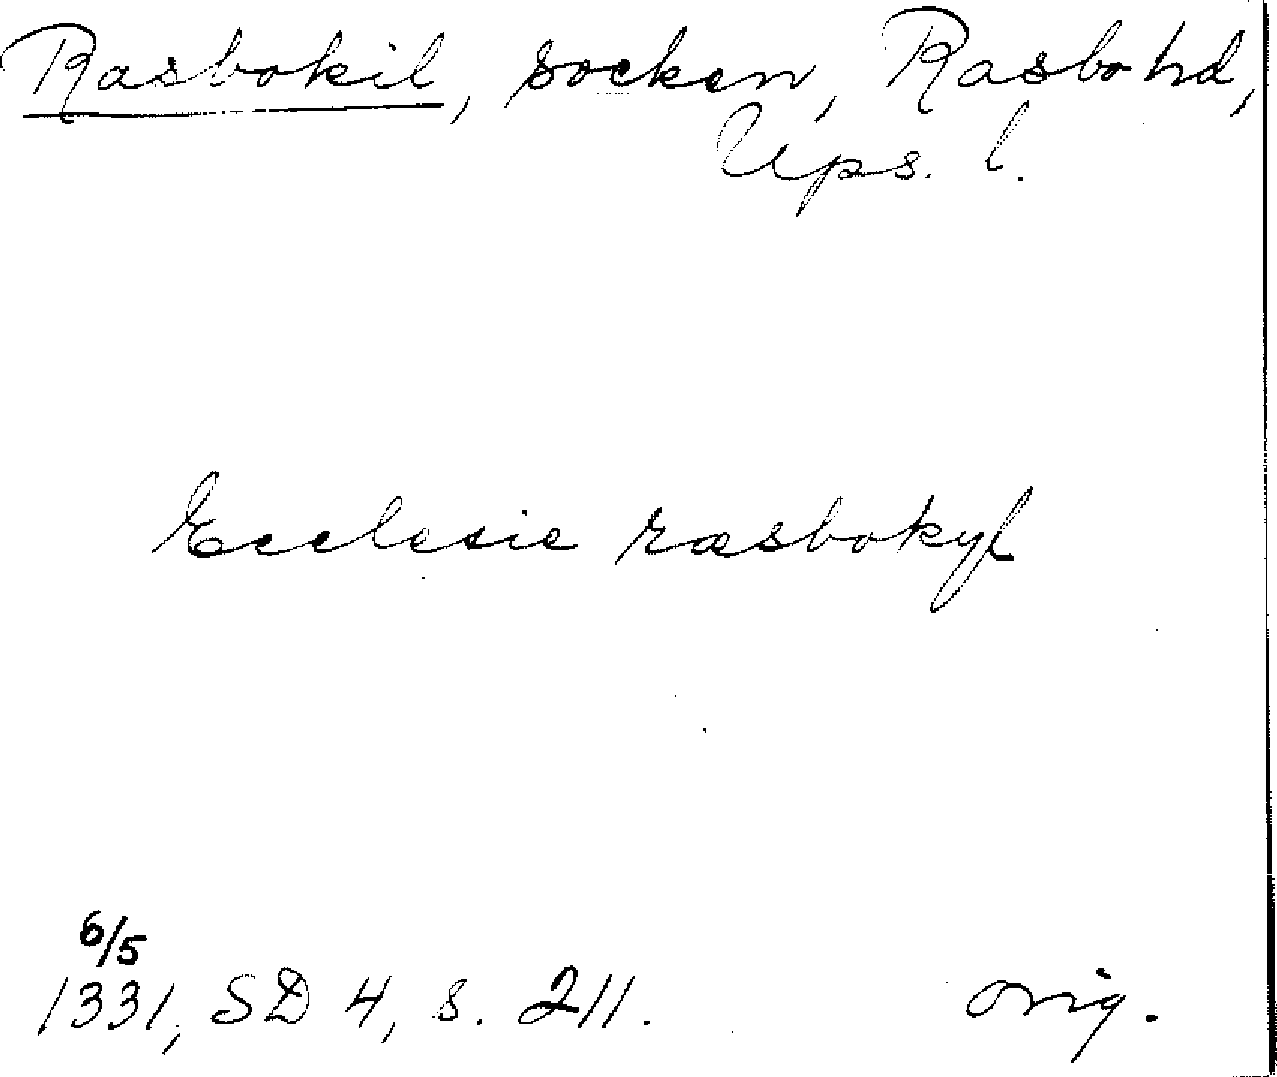 Rasbokil, socken, Rasbo hd,
Ups. l.
Ecclesie rasbokyl
6/5
1331, SD 4, s. 211. orig.